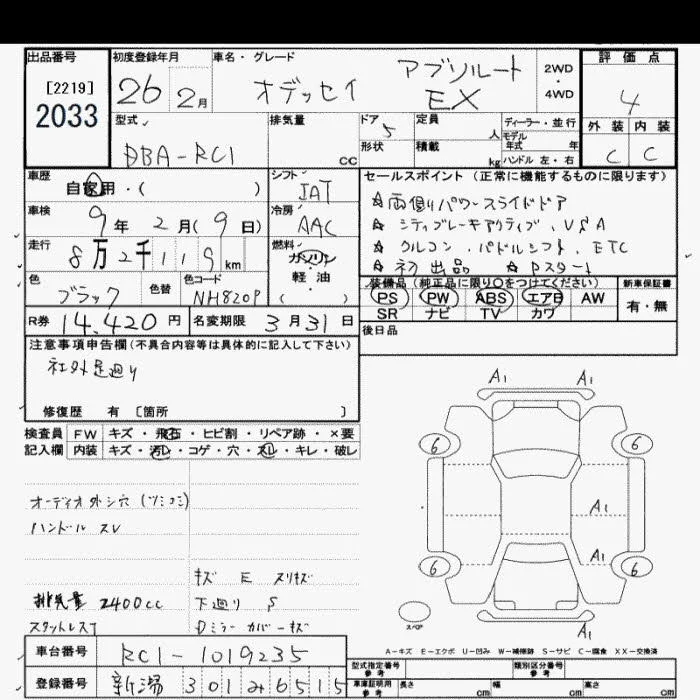 出品番号 初度登録年月 車名・グレード 評価点
[2219]
2033
26 2月
オデッセイ
アブソルート
EX
2WD
・
4WD
4
型式 排気量 ドア 定員 ディーラー・並行 外装 内装
DBA-RC1 CC 5 人 モデル
年式 年
形状 積載 kg ハンドル 左・右
C C
車歴 自家用・( ) シフト IAT
セールスポイント (正常に機能するものに限ります)
☆両側パワースライドドア
☆シティブレーキアクティブ、VSA
☆クルコン、パドルシフト、ETC
☆初出品 ☆Pスタート
車検 9年 2月(9日) 冷房 AAC
走行 8万2千119km 燃料 ガソリン
・
軽油
( )
色 ブラック 色替 色コード NH820P
装備品(純正品に限り○をつけてください) 新車保証書
PS PW ABS エアB AW
SR ナビ TV カワ
有・無
R券 14,420円 名変期限 3月31日
後日品
注意事項申告欄(不具合内容等は具体的に記入して下さい)
社外足廻り
修復歴 有 [箇所 ]
検査員 FW キズ・飛石・ヒビ割・リペア跡・×要
記入欄 内装 キズ・汚レ・コゲ・穴・スレ・キレ・破レ
オーディオ外シ穴(ツミコミ)
ハンドル スレ
キズ E スリキズ
排気量 2400cc 下廻り S
スタットレスT Dミラーカバーキズ
A1 A1
6 6
A1
A1
6 6
A1
スペア
A-キズ E-エクボ U-凹み W-補修跡 S-サビ C-腐食 XX-交換済
車台番号 RC1-1019235
登録番号 新潟 301 み 6515
型式指定番号
参考
類別区分番号
参考
車庫証明用
参考
長さ cm 幅 cm 高さ cm